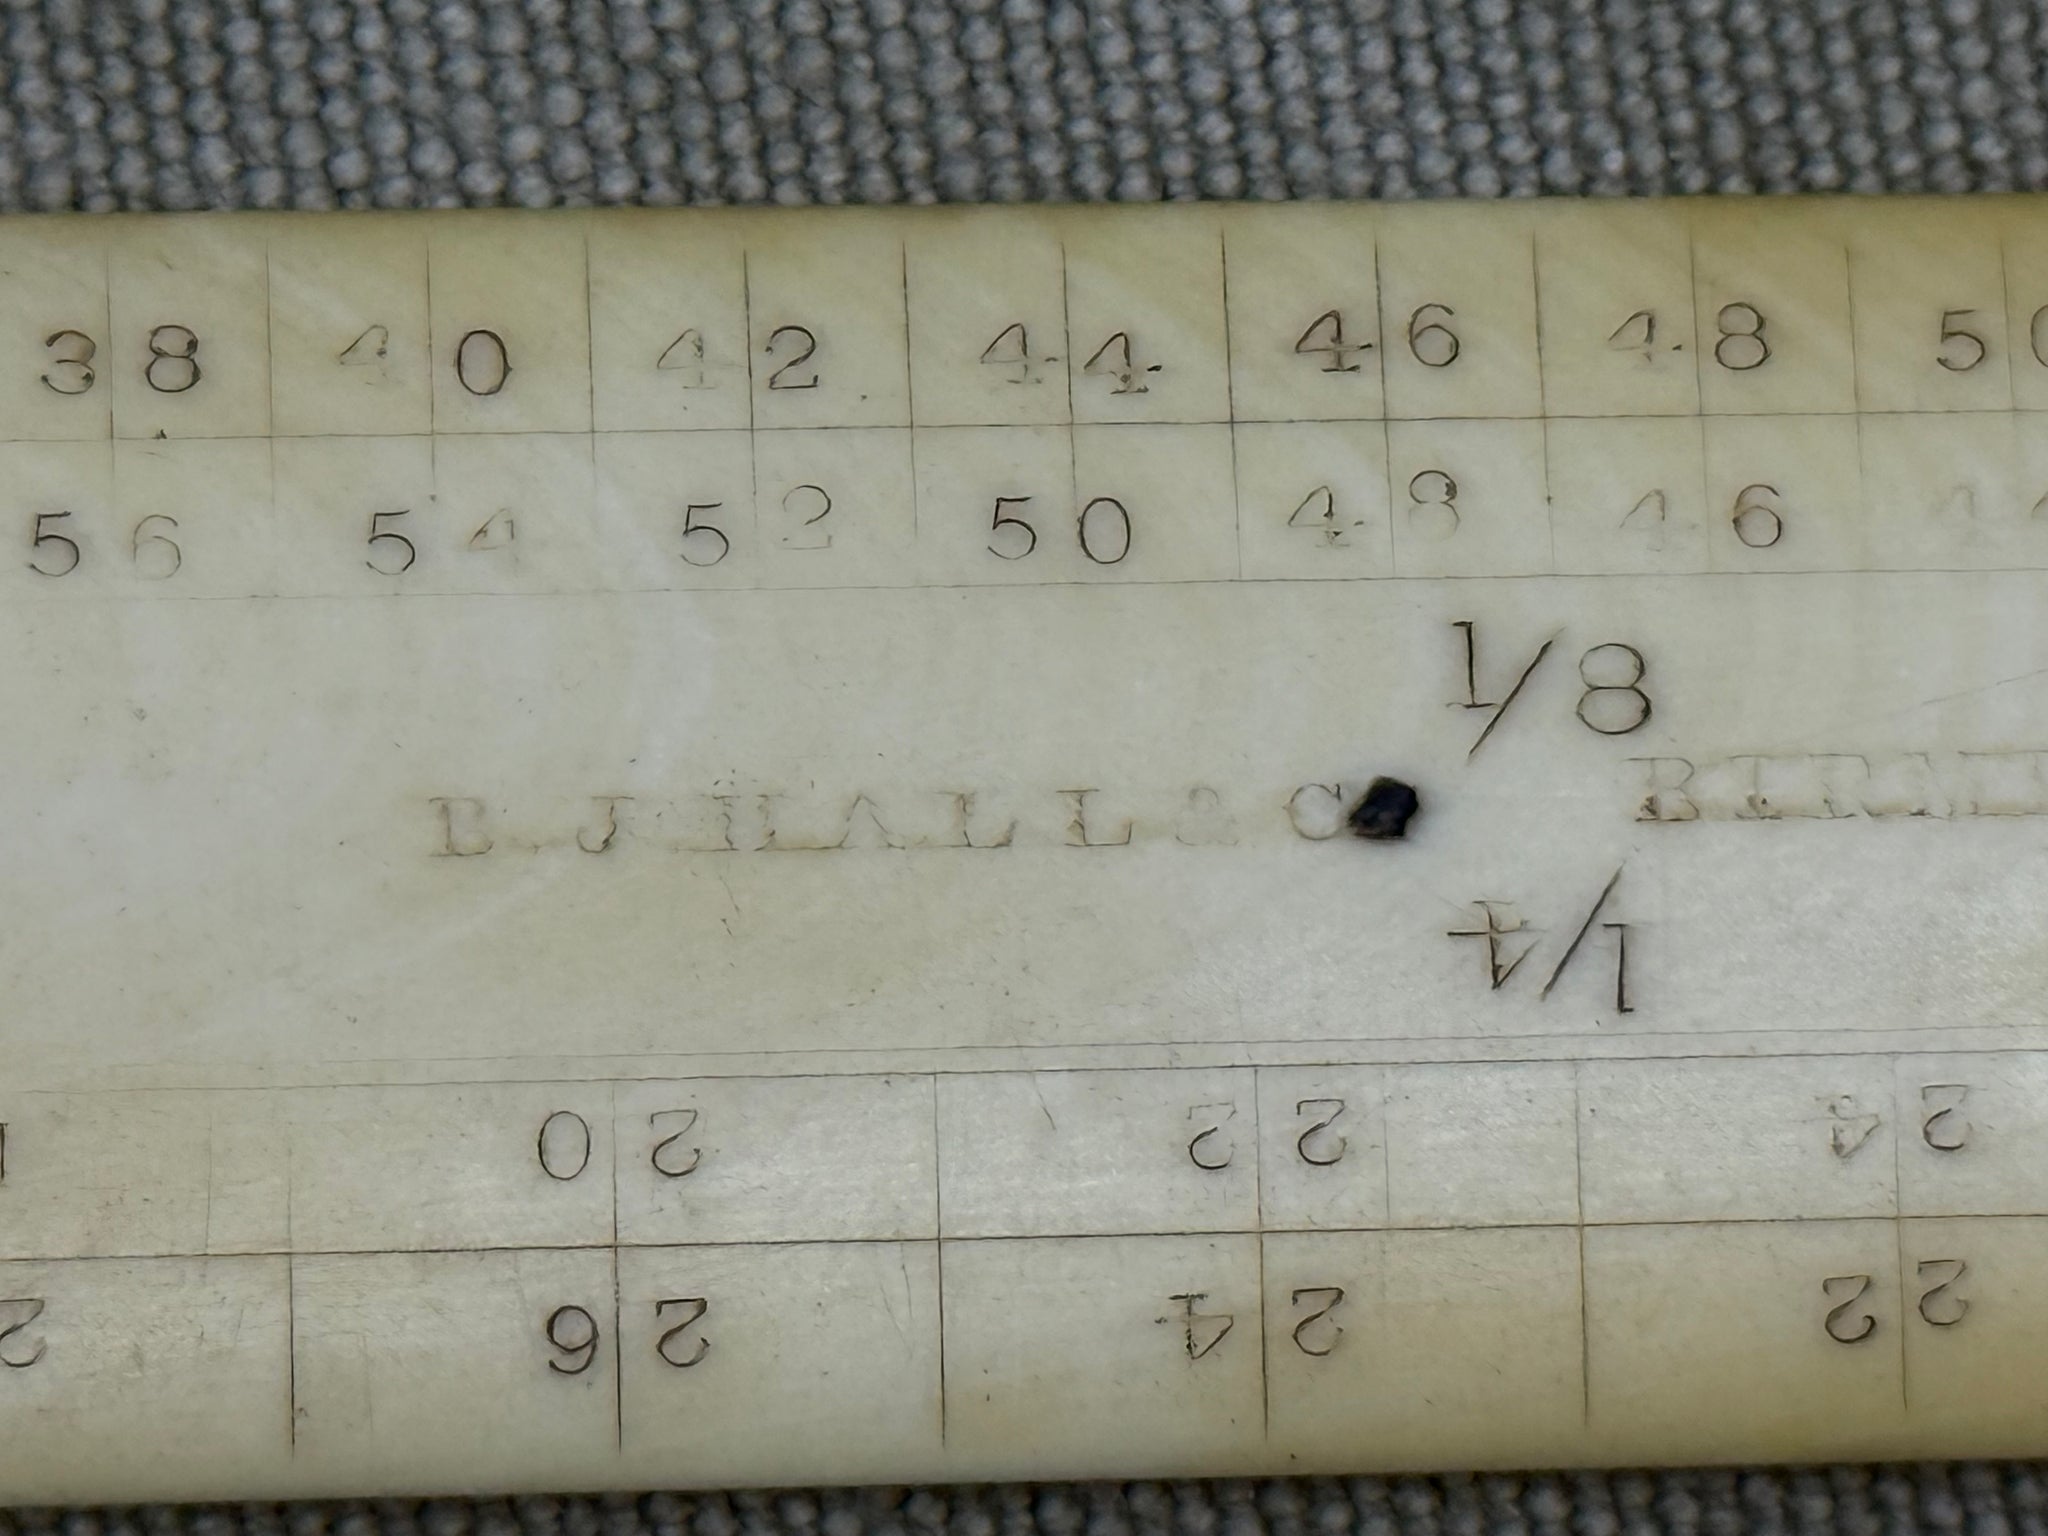 38 40 42 44 46 48 50
56 54 52 50 48 46
1/8
B. J. HALL & C
1/4
24 22 20
22 24 26